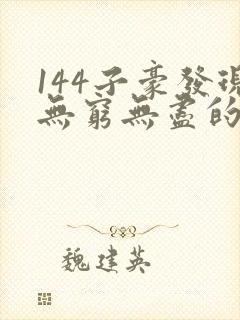 144子豪發現
無窮無盡的
魏建英